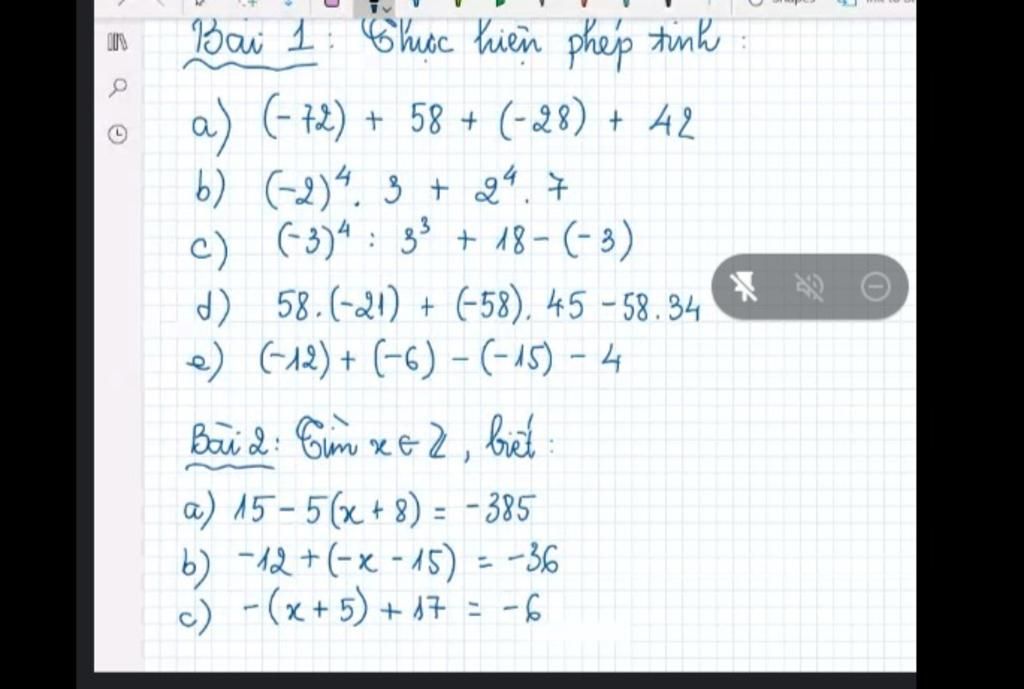 Bài 1: Thực hiện phép tính :
a) (-72) + 58 + (-28) + 42
b) (-2)⁴ . 3 + 2⁴ . 7
c) (-3)⁴ : 3³ + 18 - (-3)
d) 58.(-21) + (-58). 45 - 58.34
e) (-12) + (-6) - (-15) - 4
Bài 2: Tìm x ∈ Z, biết :
a) 15 - 5(x + 8) = -385
b) -12 + (-x - 15) = -36
c) -(x + 5) + 17 = -6